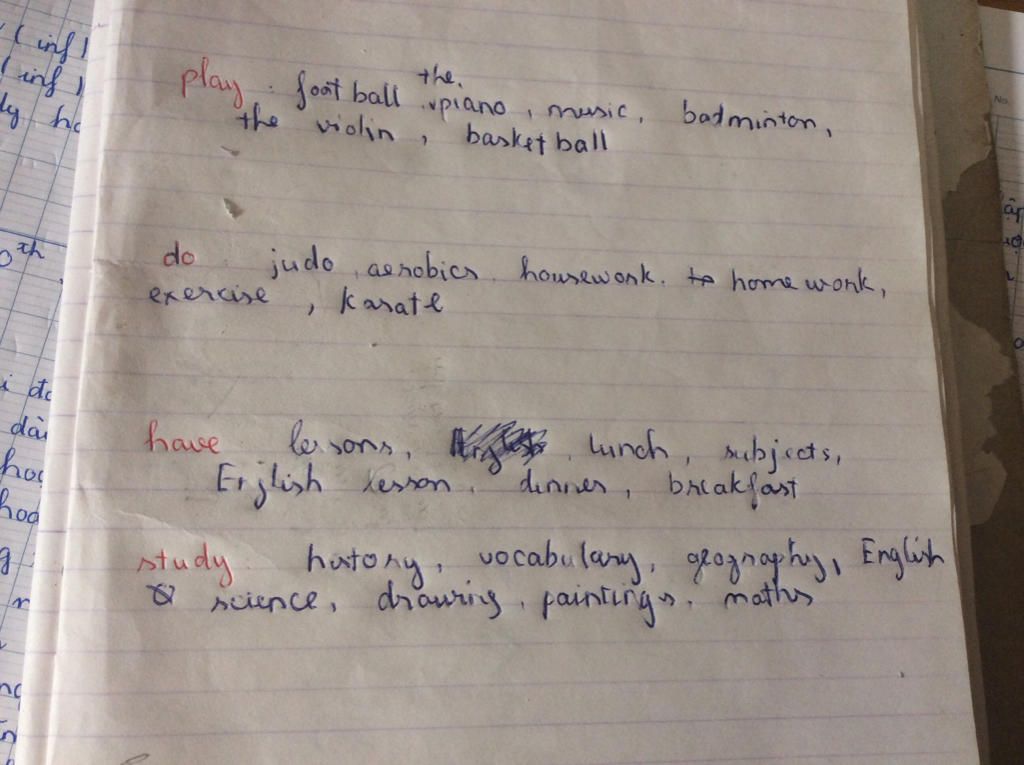 ( inf )
( inf )
the.
play : football , piano , music , badminton ,
the violin , basketball
do : judo , aerobics housework . homework ,
exercise , karate
have lessons , , lunch , subjects ,
English lesson , dinner , breakfast
study history , vocabulary , geography , English
science , drawing , paintings , maths
th
i
dài
No.